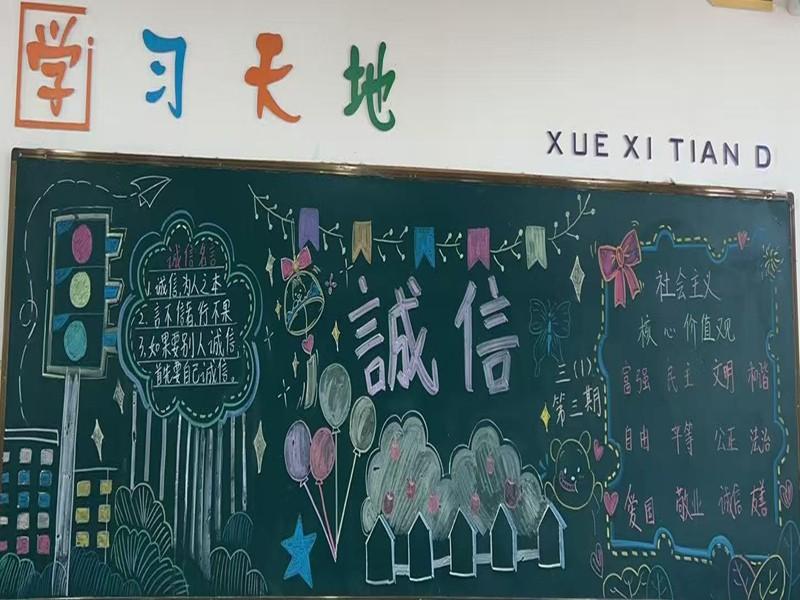 学习天地
XUE XI TIAN D
诚信名言
1.诚信,为人之本
2.言不信者,行不果
3.如果要别人诚信,
首先要自己诚信。
誠信
三(1)
第三期
社会主义
核心价值观
富强 民主 文明 和谐
自由 平等 公正 法治
爱国 敬业 诚信 友善